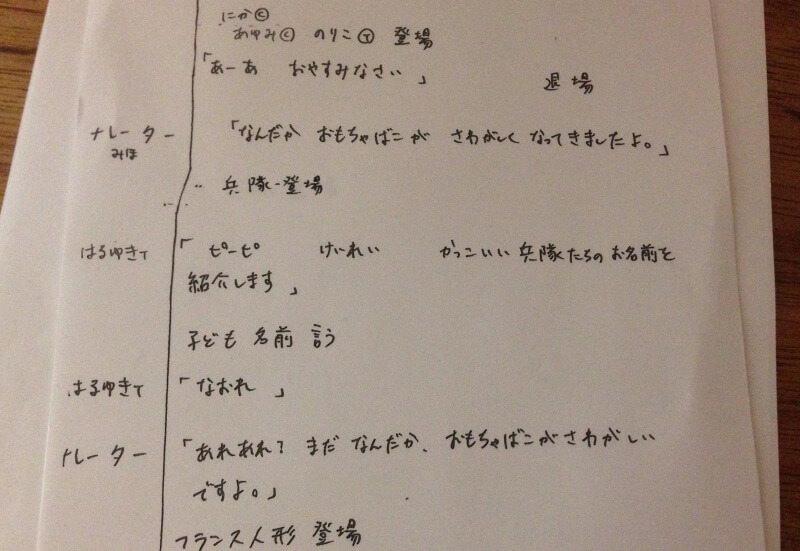 にかⓒ
あゆみⓒ のりこⓉ 登場
「あーあ おやすみなさい」
退場
ナレーター 「なんだか おもちゃばこが さわがしく なってきましたよ。」
みほ
兵隊 登場
はるゆきT 「ピーピ けいれい かっこいい 兵隊たちのお名前を
紹介します 」
子ども 名前 言う
はるゆきT 「なおれ 」
ナレーター 「あれあれ? まだ なんだか、おもちゃばこがさわがしい
ですよ。」
フランス人形 登場